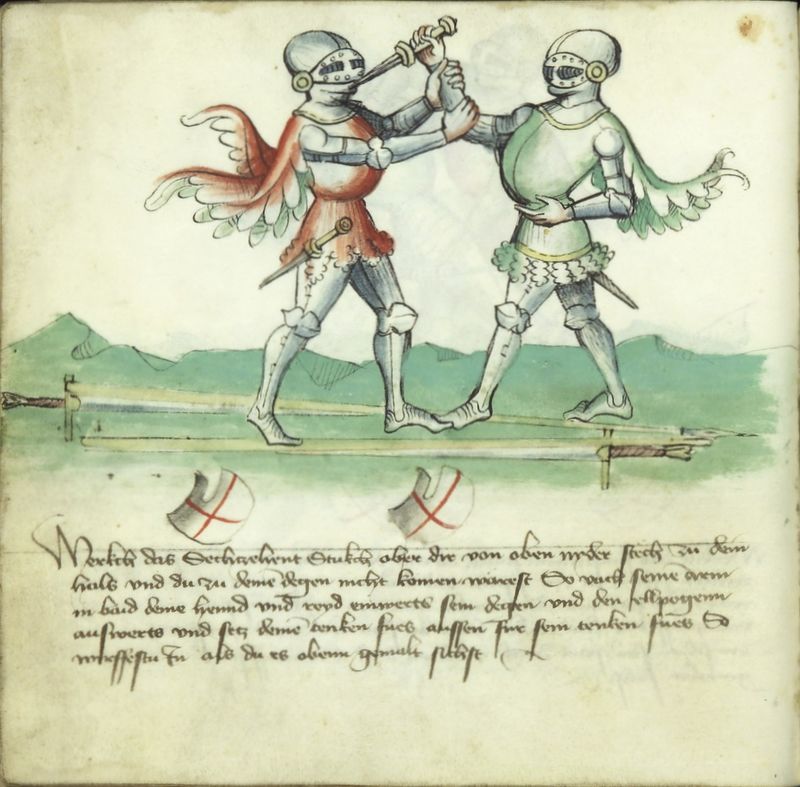 Merkch das Sechczehent Stukch ober dir von oben nyder stech zu dem
hals und du zu deinē degen nicht komen warest So vach seinē arm
in baid deine hennd und reyd einwertz sein degen und den ellpogenn
auswerts und secz deinē tenken fues aussen fur sein tenken fues So
wirffestu In als du es obenn gemalt sichst